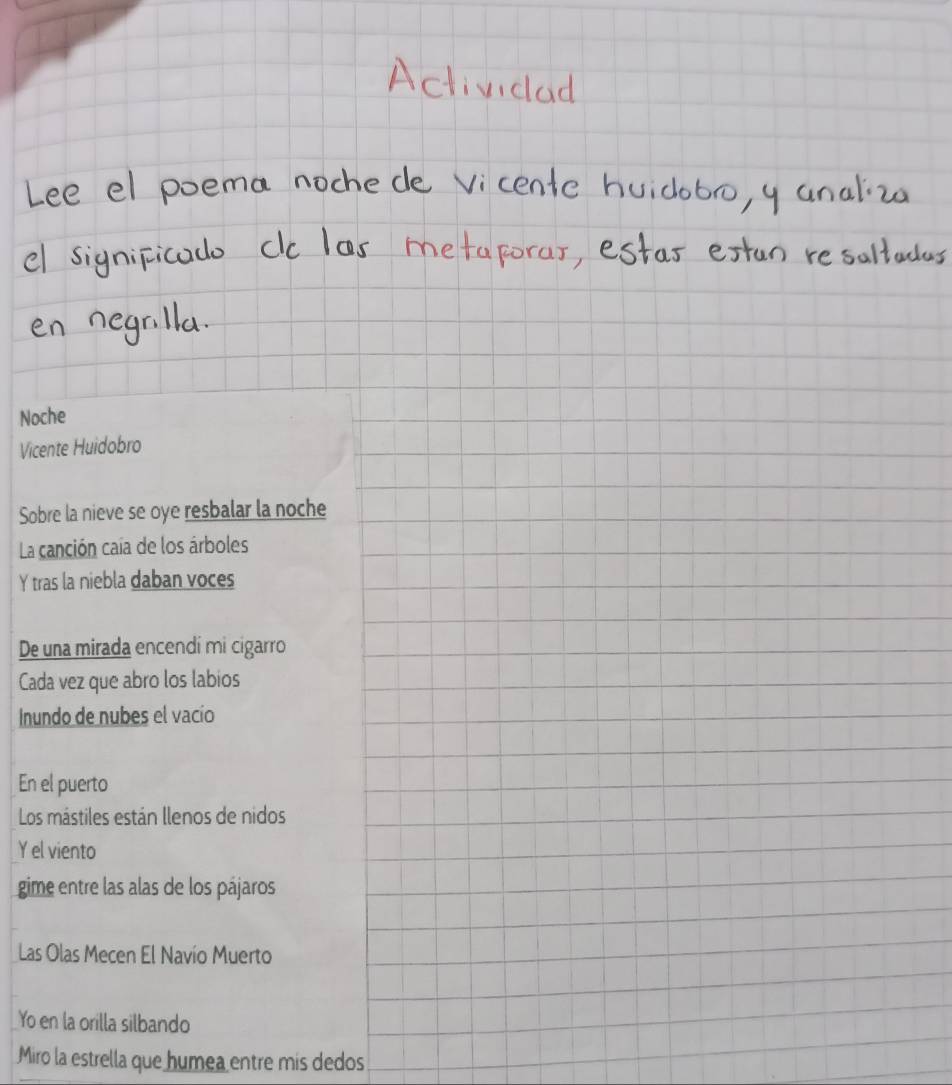 Actividad
Lee el poema noche de vicente huidobro, y analiza
el significado de las metaforas, estas estan resaltadas
en negrilla.
Noche
Vicente Huidobro
Sobre la nieve se oye resbalar la noche
La canción caía de los árboles
Y tras la niebla daban voces
De una mirada encendí mi cigarro
Cada vez que abro los labios
Inundo de nubes el vacío
En el puerto
Los mástiles están llenos de nidos
Y el viento
gime entre las alas de los pájaros
Las Olas Mecen El Navío Muerto
Yo en la orilla silbando
Miro la estrella que humea entre mis dedos